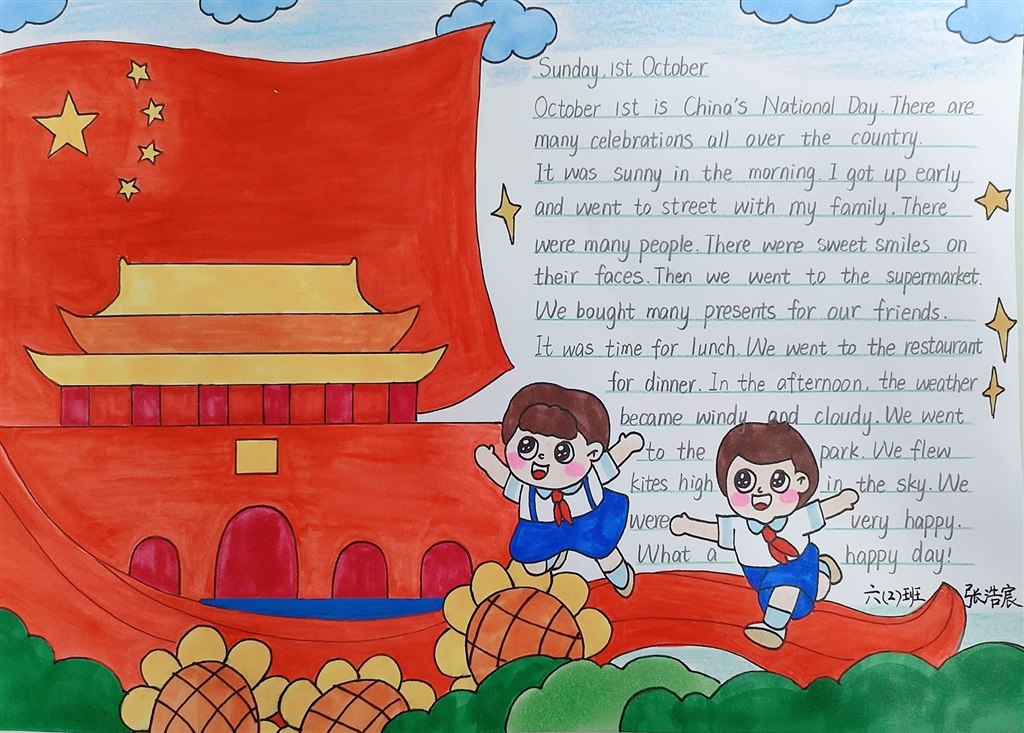 Sunday, 1st October
October 1st is China's National Day. There are
many celebrations all over the country.
It was sunny in the morning. I got up early
and went to street with my family. There
were many people. There were sweet smiles on
their faces. Then we went to the supermarket.
We bought many presents for our friends.
It was time for lunch. We went to the restaurant
for dinner. In the afternoon, the weather
became windy and cloudy. We went
to the park. We flew
kites high in the sky. We
were very happy.
What a happy day!
六(2)班 张浩宸